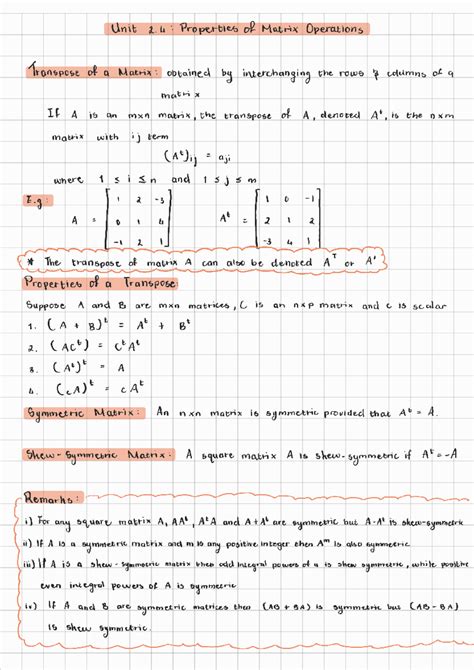 Unit 2.4: Properties of Matrix Operations
Transpose of a Matrix: obtained by interchanging the rows & columns of a
matrix
If A is an mxn matrix, the transpose of A, denoted Aᵗ, is the nxm
matrix with ij term
(Aᵗ)ij = aji
where 1 ≤ i ≤ n and 1 ≤ j ≤ m
E.g:
A = [1 2 -3; 0 1 4; -1 2 1] Aᵗ = [1 0 -1; 2 1 2; -3 4 1]
* The transpose of matrix A can also be denoted Aᵀ or A'
Properties of a Transpose
Suppose A and B are mxn matrices, C is an nxp matrix and c is scalar
1. (A + B)ᵗ = Aᵗ + Bᵗ
2. (AC)ᵗ = CᵗAᵗ
3. (Aᵗ)ᵗ = A
4. (cA)ᵗ = cAᵗ
Symmetric Matrix: An nxn matrix is symmetric provided that Aᵗ = A.
Skew-Symmetric Matrix: A square matrix A is skew-symmetric if Aᵗ = -A
Remarks:
i) For any square matrix A, AAᵗ, AᵗA and A+Aᵗ are symmetric but A-Aᵗ is skew-symmetric
ii) If A is a symmetric matrix and m is any positive integer then Aᵐ is also symmetric
iii) If A is a skew-symmetric matrix then odd integral powers of A is skew symmetric, while positive
even integral powers of A is symmetric
iv) If A and B are symmetric matrices then (AB + BA) is symmetric but (AB - BA)
is skew symmetric.